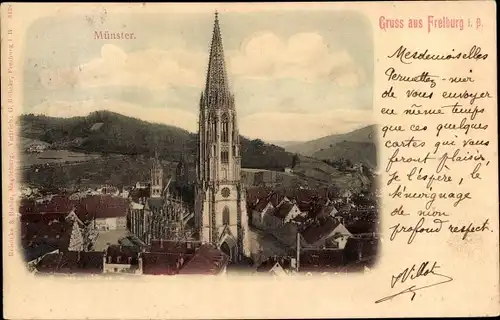 Münster.
Gruss aus Freiburg i. B.
Mesdemoiselles
Permettez-moi
de vous envoyer
en même temps
que ces quelques
cartes qui vous
feront plaisir,
je l'espère, le
témoignage
de mon
profond respect.
Villot